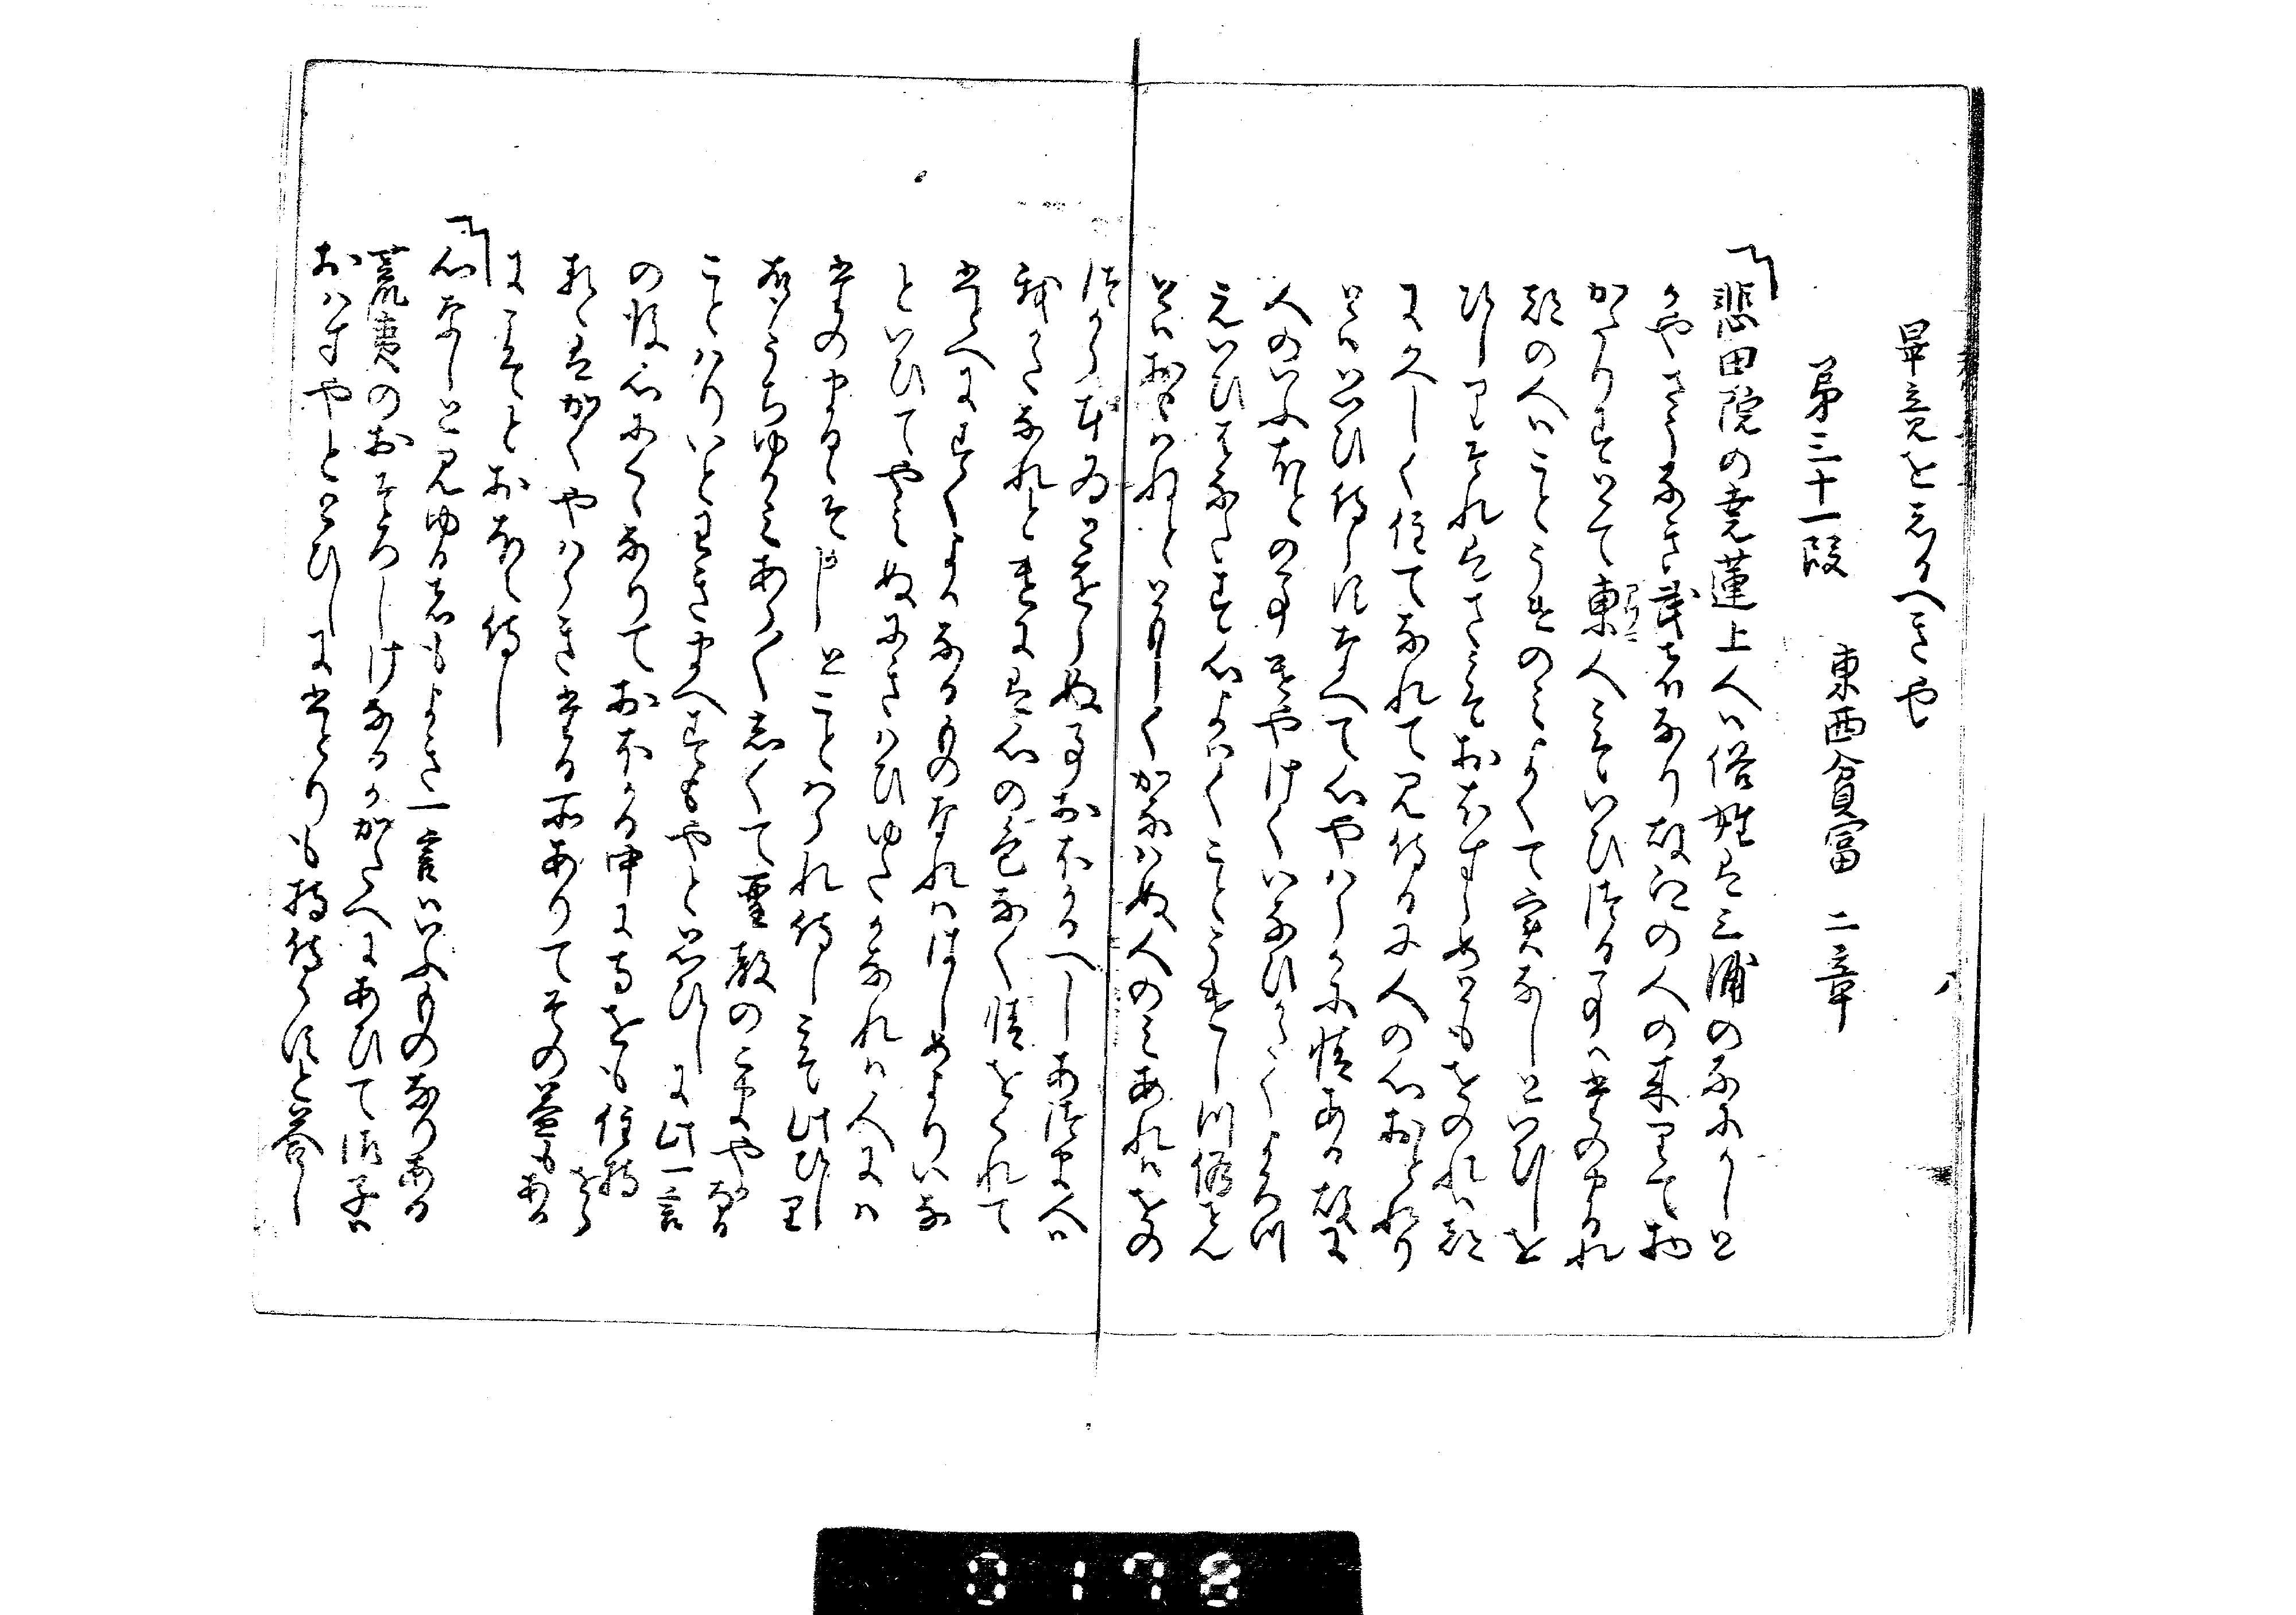 畢竟を志るへきや
第三十一段　東西貧富　二章
悲田院の尭蓮上人ハ俗姓は三浦のなにかしと
かやさうなき武者なり故郷の人の来りて物
かたりすとて東人こそいひつる事ハたのまるれ
都の人ハことうけのみよくて実なしといひしを
ひしりそれはさこそおほすらめともをのれハ都
に久しく住てなれて見侍るに人の心おとれり
とハ思ひ侍らすなへて心やハらかに情ある故に
人のいふほとの事けやけくいなひかたくよろつ
えいひはなたす心よはくことうけしつ偽せん
とハおもハねとともしくかなハぬ人のみあれハをの
つから本ゐとをらぬ事おほかるへしあつま人ハ
我かたなれとけには心の色なく情をくれて
ひとへにすくよかなるものなれハはしめよりいな
といひてやみぬにきハひゆたかなれハ人にハ
たのまるゝそかしとことハられ侍しこそ此ひしり
聲うちゆかみあら〳〵しくて聖教のこまやかなる
ことハりいとわきまへすもやと思ひしに此一言
の後心にくゝなりておほかる中に寺をも住持
せらるゝはかくやハらきたる所ありてその益もある
にこそとおほえ侍し
心なしと見ゆる者もよき一言ハいふものなりある
荒夷のおそろしけなるかかたへにあひて御子ハ
おハすやととひしにひとりも持侍らすと答し
0178